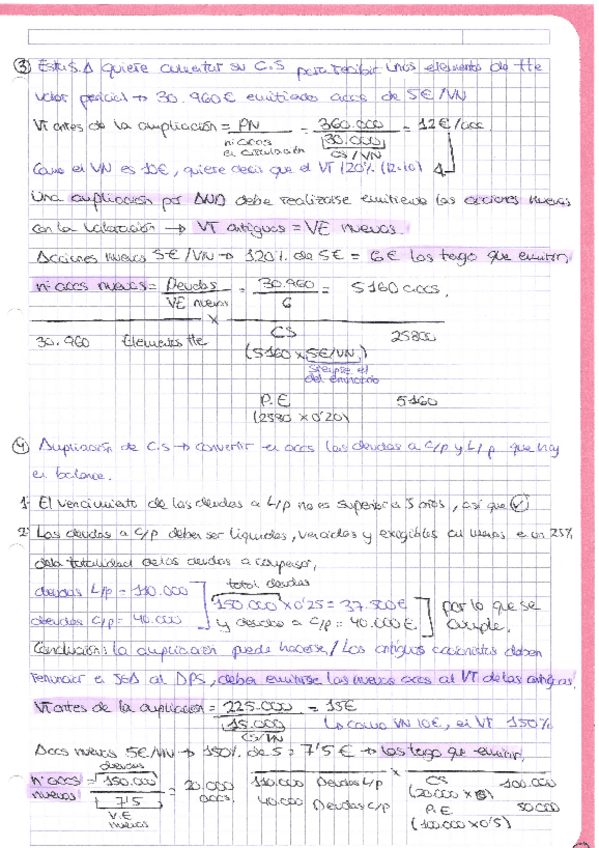 ③ Esta S.A quiere aumentar su C.S para recibir unos elementos de tte
valor pericial → 30.960€ emitiendo accs de 5€/VN
VT antes de la ampliación = PN / nº accs en circulación = 360.000 / 30.000 CS/VN = 12€/acc
Como el VN es 10€, quiere decir que el VT 120% (12·10)
Una ampliación por AND debe realizarse emitiendo las acciones nuevas
con la valoración → VT antiguas = VE nuevas.
Acciones nuevas 5€/VN → 120% de 5€ = 6€ las tengo que emitir,
nº accs nuevas = Deudas / VE nuevas = 30.960 / 6 = 5160 accs.
x
30.960 Elementos tte CS 25800
(5160 x 5€/VN)
siempre el
del enunciado
P.E 5160
(2580 x 0'20)
④ Ampliación de C.S → convertir en accs las deudas a C/p y L/p que hay
en balance.
1· El vencimiento de las deudas a L/p no es superior a 5 años, así que ✓
2· Las deudas a C/p deben ser líquidas, vencidas y exigibles al menos en un 25%
de la totalidad de las deudas a compensar,
deudas L/p = 110.000
deudas C/p = 40.000
total deudas
150.000 x 0'25 = 37.500€
y deudas a C/p = 40.000€
por lo que se
cumple.
Conclusión: la ampliación puede hacerse / Los antiguos accionistas deben
renunciar al DPS, deben emitirse las nuevas accs al VT de las antiguas.
VT antes de la ampliación = 225.000 / 15.000 CS/VN = 15€
↳ como VN 10€, el VT 150%
Accs nuevas 5€/VN → 150% de 5 = 7'5€ → las tengo que emitir,
nº accs nuevas = deudas 150.000 / 7'5 V.E nuevas = 20.000 accs.
x
110.000 Deudas L/p CS 100.000
40.000 Deudas C/p (20.000 x 5)
P.E 50.000
(100.000 x 0'5)